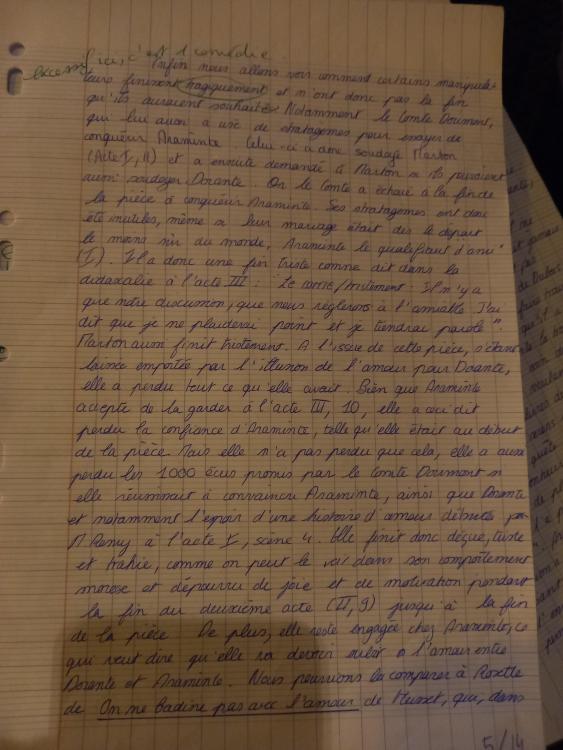 ici, c'est 1 comédie.
excessif
Enfin nous allons voir comment certains manipula-
teurs finissent tragiquement et n'ont donc pas la fin
qu'ils auraient souhaité. Notamment le Comte Dorimont,
qui lui aussi a usé de stratagèmes pour essayer de
conquérir Araminte. Celui-ci a soudoyé Marton
(Acte I, 11) et a ensuite demandé à Marton si ils pouvaient
aussi soudoyer Dorante. Or le Comte a échoué à la fin de
la pièce à conquérir Araminte. Ses stratagèmes ont donc
été inutiles, même si leur mariage était dès le départ
le moins sûr du monde, Araminte le qualifiant d'
(I). Il a donc une fin triste comme dit dans la
didascalie à l'acte III : "Le comte, tristement : Il n'y a
que notre discussion, que nous réglerons à l'amiable. J'ai
dit que je ne plaiderai point et je tiendrai parole".
Marton aussi finit tristement. A l'issue de cette pièce, s'étant
laissée emportée par l'illusion de l'amour pour Dorante,
elle a perdu tout ce qu'elle avait. Bien que Araminte
accepte de la garder à l'acte III, 10, elle a ceci dit
perdu la confiance d'Araminte, telle qu'elle était au début
de la pièce. Mais elle n'a pas perdu que cela, elle a aussi
perdu les 1000 écus promis par le Comte Dorimont si
elle réussissait à convaincre Araminte, ainsi que Dorante
et notamment l'espoir d'une histoire d'amour débutée par
M Remy à l'acte I, scène 4. Elle finit donc déçue, triste
et trahie, comme on peut le voir dans son comportement
morose et dépourvu de joie et de motivation pendant
la fin du deuxième acte (II, 9) jusqu'à la fin
de la pièce. De plus, elle reste engagée chez Araminte, ce
qui veut dire qu'elle va devoir subir l'amour entre
Dorante et Araminte. Nous pourrions la comparer à Rosette
de On ne badine pas avec l'amour de Musset, qui, dans
5/14